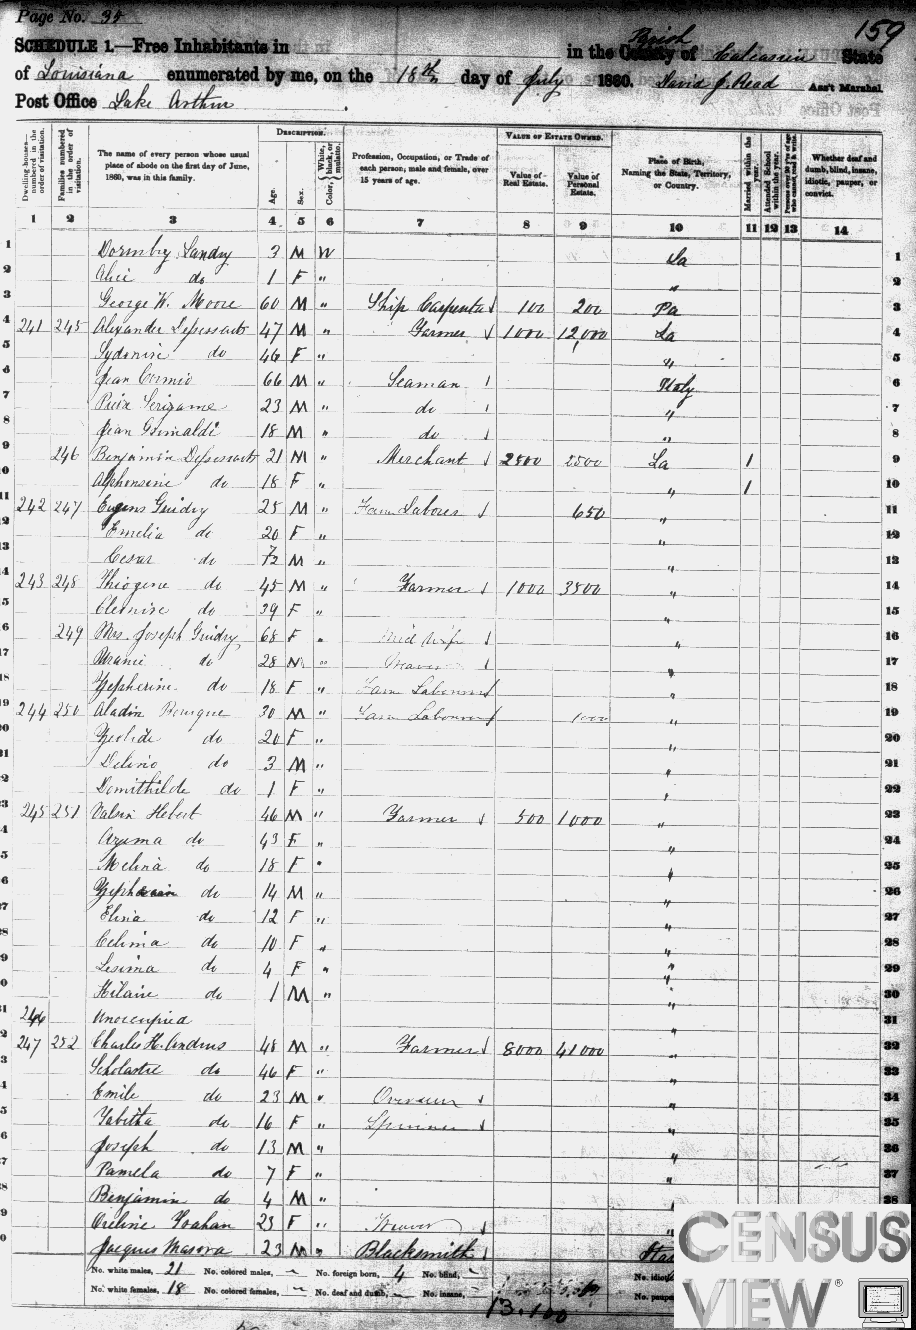 Page No. 35
159
SCHEDULE 1.—Free Inhabitants in in the County of Parish Calcasieu State
of Louisiana enumerated by me, on the 18th day of July 1860. David J. Read Ass't Marshal
Post Office Lake Arthur
Dwelling-houses—numbered in the order of visitation.
Families numbered in the order of visitation.
The name of every person whose usual place of abode on the first day of June, 1860, was in this family.
DESCRIPTION.
Age.
Sex.
Color, White, black, or mulatto.
Profession, Occupation, or Trade of each person, male and female, over 15 years of age.
VALUE OF ESTATE OWNED.
Value of Real Estate.
Value of Personal Estate.
Place of Birth, Naming the State, Territory, or Country.
Married within the year.
Attended School within the year.
Persons over 20 y'rs of age who cannot read & write.
Whether deaf and dumb, blind, insane, idiotic, pauper, or convict.
1 2 3 4 5 6 7 8 9 10 11 12 13 14
1 Landry 3 M W La 1
2 Alice do 1 F " " 2
3 George W. Moore 60 M " Ship Carpenter 100 200 Pa 3
4 241 245 Alexander 47 M " Farmer 1000 12,000 La 4
5 do 46 F " " 5
6 Jean 66 M " Seaman Italy 6
7 23 M " do " 7
8 Jean Grimaldi 18 M " do " 8
9 246 Benjamin 21 M " Merchant 2500 2500 La 1 9
10 Alphonsine do 18 F " " 1 10
11 242 247 Eugens Guidry 25 M " Farm Laborer 650 " 11
12 Emelia do 20 F " " 12
13 Cesar do M " " 13
14 243 248 do 45 M " Farmer 1000 3500 " 14
15 Cleonise do 39 F " " 15
16 249 Mrs. Joseph Guidry 68 F " Mid Wife " 16
17 Uranie do 28 " Weaver " 17
18 Zepherine do 18 F " Farm Laborer " 18
19 244 250 Aladin Bourque 30 M " Farm Laborer 1000 " 19
20 do 20 F " " 20
21 Delino do 3 M " " 21
22 Domithilde do 1 F " " 22
23 245 251 Valsin Hebert 46 M " Farmer 500 1000 " 23
24 Azema do 43 F " " 24
25 Melina do 18 F " " 25
26 do 14 M " " 26
27 Elina do 12 F " " 27
28 Celima do 10 F " " 28
29 Lesima do 4 F " " 29
30 Hilaire do 1 M " " 30
31 246 Unoccupied " 31
32 247 252 Charles H. Andrus 48 M " Farmer 8000 41000 " 32
33 Scholastie do 46 F " " 33
34 Emile do 23 M " Overseer " 34
35 Tabitha do 16 F " Spinner " 35
36 Joseph do 13 M " " 36
37 Pamela do 7 F " " 37
38 Benjamin do 4 M " 38
39 Oreline 23 F " Weaver
40 Jacques Masora 23 M " Blacksmith
No. white males, 21 No. colored males, — No. foreign born, 4 No. blind, — No. idiotic
No. white females, 18 No. colored females, — No. deaf and dumb, — No. insane, — No. paupers
13.100
CENSUS
VIEW®